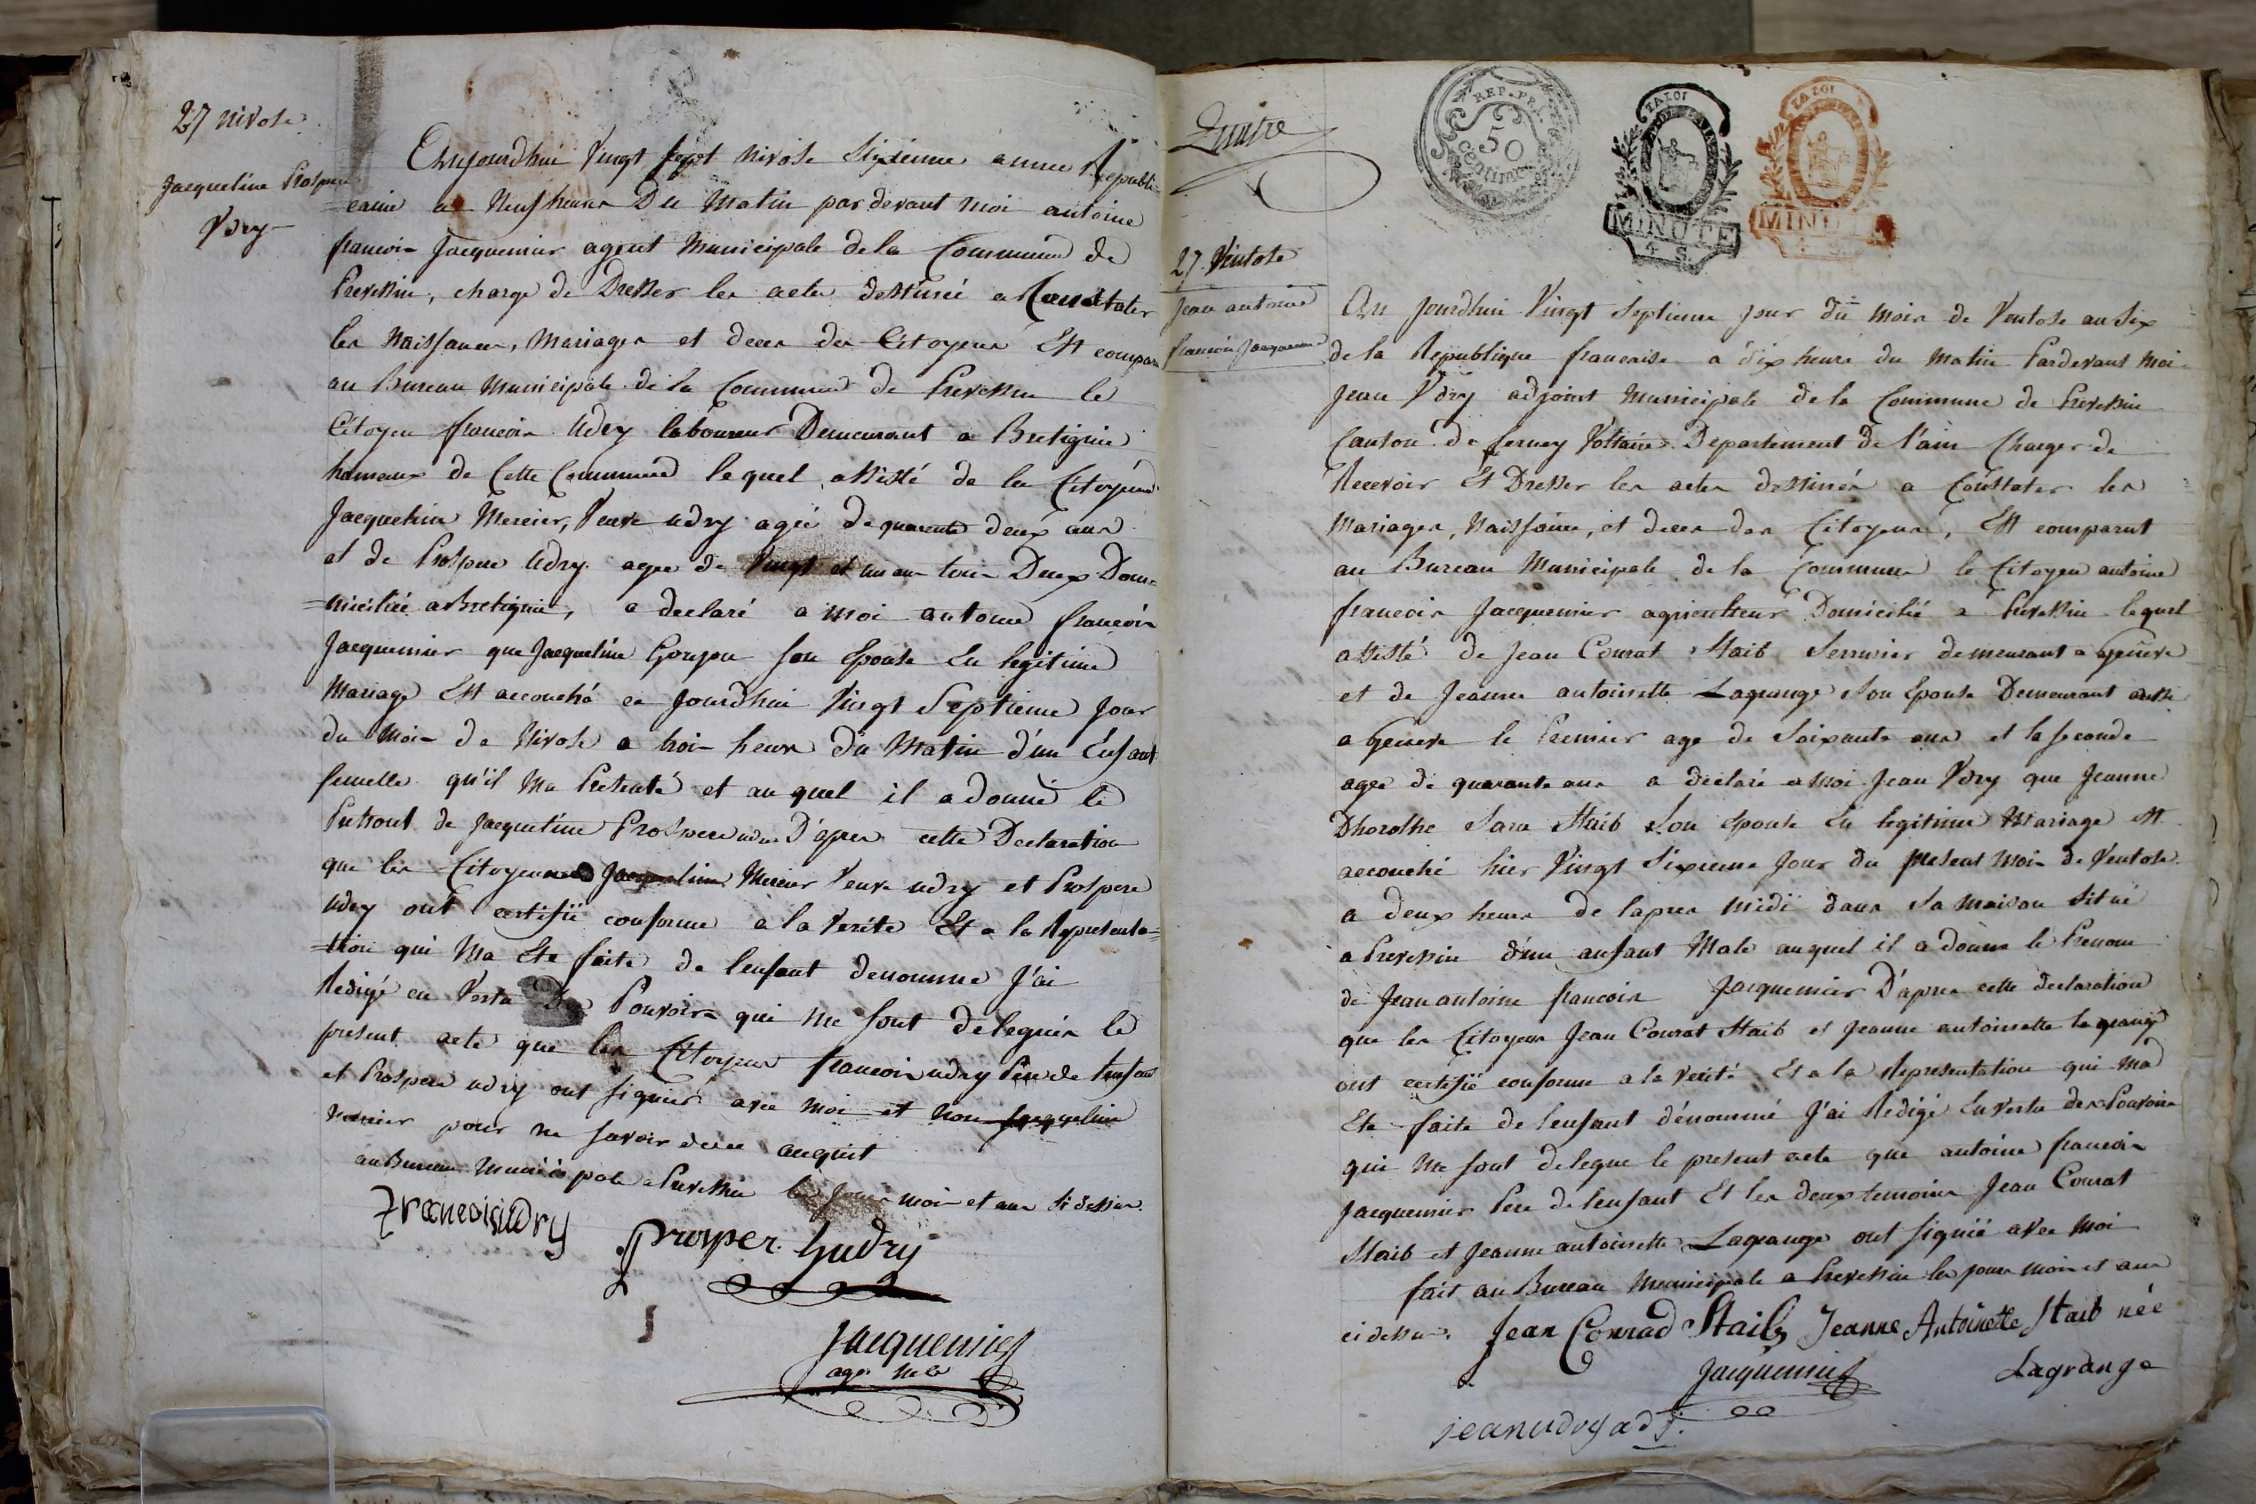 27 nivose
Jacqueline Prospere
Vdry
Aujourdhui Vingt Sept nivose Sixieme année Republi=
=caine a Neuf heures Du Matin par devant moi antoine
francois Jacquemier agent Municipale de la Commune de
Prevessin, charge de Dresser les actes destinée a Constater
les Naissances, Mariages et deces des Citoyens Est comparu
au Bureau Municipale de la Commune de Prevessin le
Citoyen francois Udry laboureur Demeurant a Bretignie
hameaux de Cette Commune lequel assisté de la Citoyene
Jacqueline Mercier, Veuve udry agée de quarente deux ans
et de Prospere Udry agee de Vingt et un ans tous Deux Domi=
=niciliée a Bretignie, a declaré a moi antoine francois
Jacquemier que Jacqueline Goujon son Epouse En legitime
Mariage Est accouché ce Jourdhui Vingt Septieme Jour
du Mois de Nivose a trois heures du Matin d'un Enfant
femelle qu'il Ma Presenté et au quel il a donné le
Prenont de Jacqueline Prospere udry D'apres cette Declaration
que les Citoyennes Jacqueline Mercier Veuve udry et Prospere
udry ont certifié conforme a la Verite Et a la Representa=
=tion qui Ma Ete faite de lenfant denomme J'ai
Redigé en Vertu Des Pouvoirs qui me sont delegués le
present acte que les Citoyens francois udry Pere de lenfant
et Prospere udry ont signés avec moi et non Jacqueline
mercier pour ne savoir de ce enquit
au Bureau Municipale a Prevessin le Jour mois et ans si dessus
francois udry
prosper hudry
Jacquemier
age Mle
Quatre
REP. FRA
50
centimes
LA LOI
MINUTE
4 S.
LA LOI
MINUTE
4 S.
27 Ventose
Jean antoine
francois Jacquemier
Au Jourdhui Vingt Septieme Jour du mois de Ventose an Six
de la Republique francaise a dix heures du matin Pardevant Moi
Jean Vdry adjoint Municipale de la Commune de Prevessin
Canton de ferney Voltaire Departement de l'ain Charger de
Recevoir Et Dresser les actes destinés a Constater les
Mariages, Naissance, et deces des Citoyens, Est comparut
au Bureau Municipale de la Commune le Citoyen antoine
francois Jacquemier agriculteur Domicilié a Prevessin lequel
assisté de Jean Conrat Staib Serrurier demeurant a Geneve
et de Jeanne antoinette Lagrange Son Epouse Demeurant aussi
a Geneve le Premier age de Soixante ans et la seconde
agee de quarante ans a declaré a moi Jean Vdry que Jeanne
Dhorothe Sara Staib Son Epouse En legitime Mariage est
accouché hier Vingt Sixieme Jour du present mois de Ventose
a deux heures de lapres midi dans sa maison situé
a Prevessin d'un anfant Male auquel il a donne le Prenom
de Jean antoine francois Jacquemier D'apres cette declaration
que les Citoyens Jean Conrat Staib et Jeanne antoinette lagrange
ont certifié conforme a la verité Et a la Representation qui ma
Ete faite de lenfant dénommé J'ai Redigé En vertu des Pouvoirs
qui me sont delegue le present acte que antoine francois
Jacquemier Pere de lenfant Et les deux temoins Jean Conrat
Staib et Jeanne antoinette Lagrange ont signié avec moi
fait au Bureau Municipale a Prevessin les jour mois et ans
ci dessus. Jean Conrad Staib Jeanne Antoinette Staib née
Jacquemier Lagrange
jean udry adj.